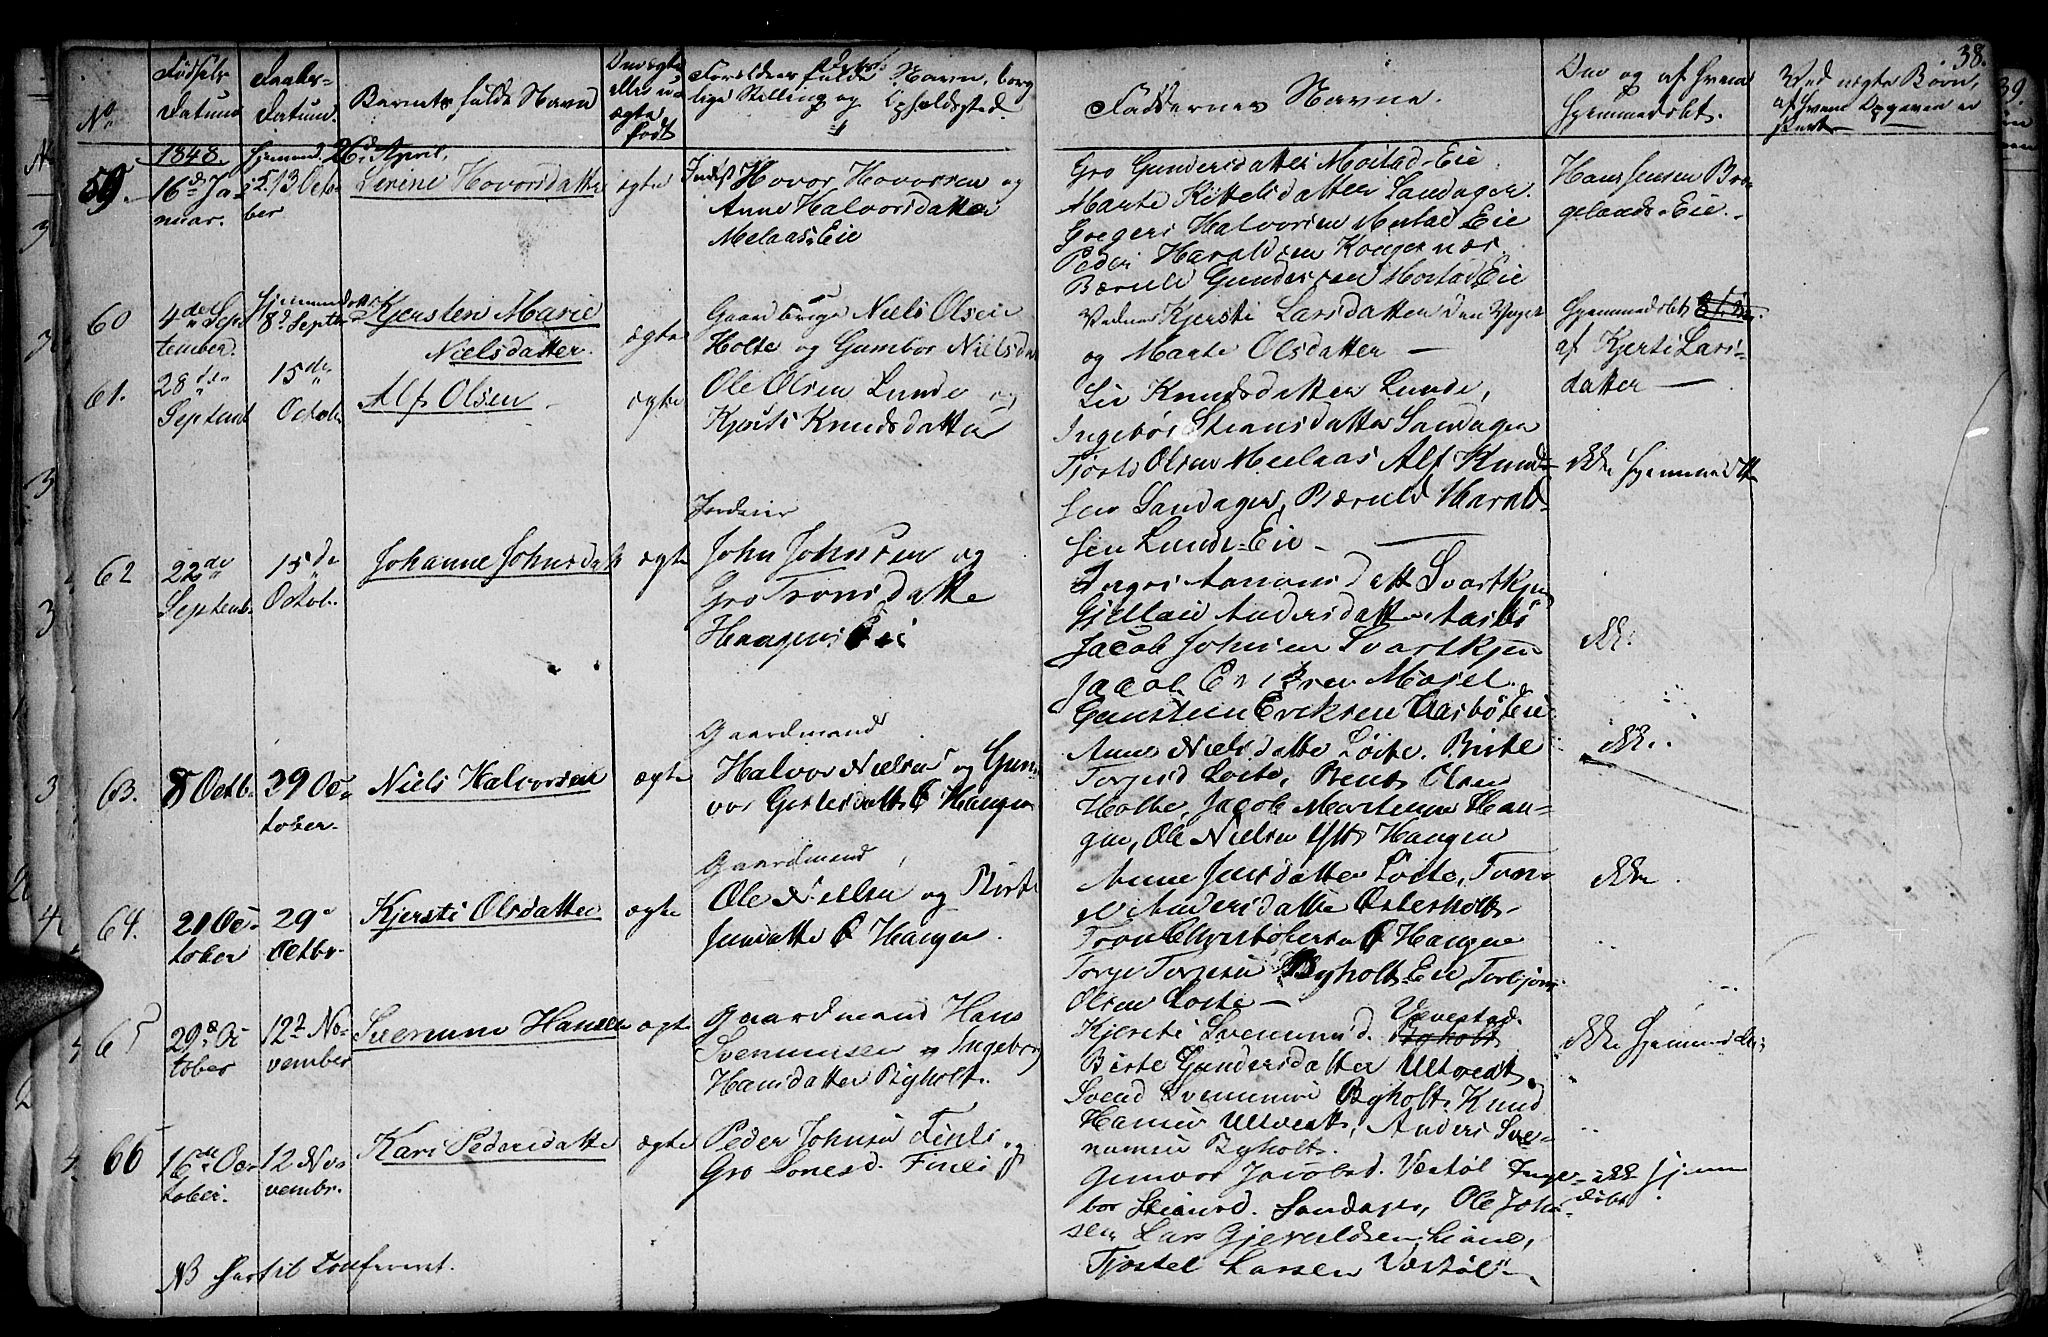 38.
No
Fødsels Datum
Daabs-Datum.
Barnets fulde Navn
ægte født
Forældres fulde Navn, borg
lige Stilling og Opholdsted.
Faddernes Navne.
Om og af hvem
hjemmedøbt.
Ved uægte Børn,
1848. hjemmed. 26de April.
59. 16de Ja-
nuar.
13 Octo-
ber
Serine Hovorsdatter
ægte
Indst Hovor Hovorsen og
Anne Halvorsdatter
Melaas Eie
Gro Gundersdatter Mostad Eie
Marte Kittelsdatter Sandager.
Gregers Halvorsen Mostad Eie
Peder Haraldsen Kongernæs
Bærulf Gundersen Mostad Eie
Hans Jensen Bre-
gelands-Eie.
60 4de Sep-
tember.
hjemmedøbt
8de Septbr
Kjersten Marie
Nielsdatter.
ægte
Gaardbruger Niels Olsen
Holte og Gumbor Nielsda
Kjersti Larsdatter den Yngre
og Marte Olsdatter —
Hjemmedøbt
af Kjersti Lars-
datter —
61. 28de
Septemb
15de
Octob.
Alf Olsen
ægte
Ole Olsen Lunde og
Kjersti Knudsdatter
Siv Knudsdatter Lunde,
Ingebor Steansdatter Sandager
Tjøstel Olsen Melaas Alf Knud-
sen Sandager, Bærulf Harald-
sen Lunde-Eie —
ikke hjemmedøbt
62 22de
Septemb.
15de
Octob.
Johanne Johnsdatt
ægte
Inderier
John Johnsen og
Gro Tronsdatte
Haugens Eie
Inger Aanonsdatt Svartkjen
Andersdatter Aasbø
Jacob Johnsen Svartkjen
Jacob Eriksen Mosel.
Gunsten Eriksen Aasbø Eie
ikke.
63. 8 Octb.
29 Oc-
tober.
Niels Halvorsen
ægte
Gaardmand
Halvor Nielsen og Gun
vor Gjeruldsdatt Ø Haugen
Anne Nielsdatte Løite. Birte
Torjusd Løite, Bent Olsen
Holte, Jacob Mortensen Hau-
gen, Ole Nielsen Ystr Haugen
ikke.
64. 21 Oc-
tober
29de
Octbr.
Kjersti Olsdatter
ægte
Gaardmand
Ole Nielsen og Birte
Jensdatte Ø Haugen.
Anne Jensdatter Løite, Tone
Andersdatte Østerholt
Tron Christophersen Ø Haugen
Torje Torjesen Bygholt Eie Torbjørn
Olsen Løite —
ikke.
65 29de Oc
tober
12te No-
vember
Svennum Hansen
ægte
Gaardmand Hans
Svennumsen og Ingeborg
Hansdatter Bygholt.
Kjersti Svennumsd. Vævestad
Birte Gundersdatter Ultvedt,
Svend Svennumsen Bygholt, Knud
Hansen Ultvedt, Anders Sve-
numsen Bygholt.
ikke hjemmedøbt
66 16de Oc-
tober.
12 No-
vembr.
Kari Pedersdatte
ægte
Peder Johnsen Finli og
Gro Jonesd. Finli
Gunvor Jacobsd. Væstøl Inge-
bor Steansd. Sandager, Ole John-
sen Lars Gjeruldsen Liane,
Tjøstel Larsen Væstøl —
ikke hjemme
døbt
NB hertil Confereret.